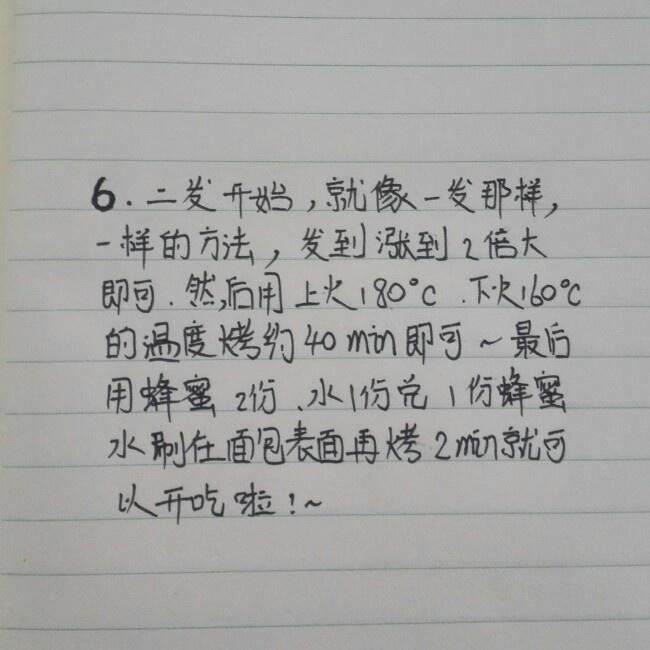 6.二发开始,就像一发那样,
一样的方法,发到涨到2倍大
即可.然后用上火180°C.下火160°C
的温度烤约40min即可~最后
用蜂蜜2份、水1份兑1份蜂蜜
水刷在面包表面再烤2min就可
以开吃啦!~